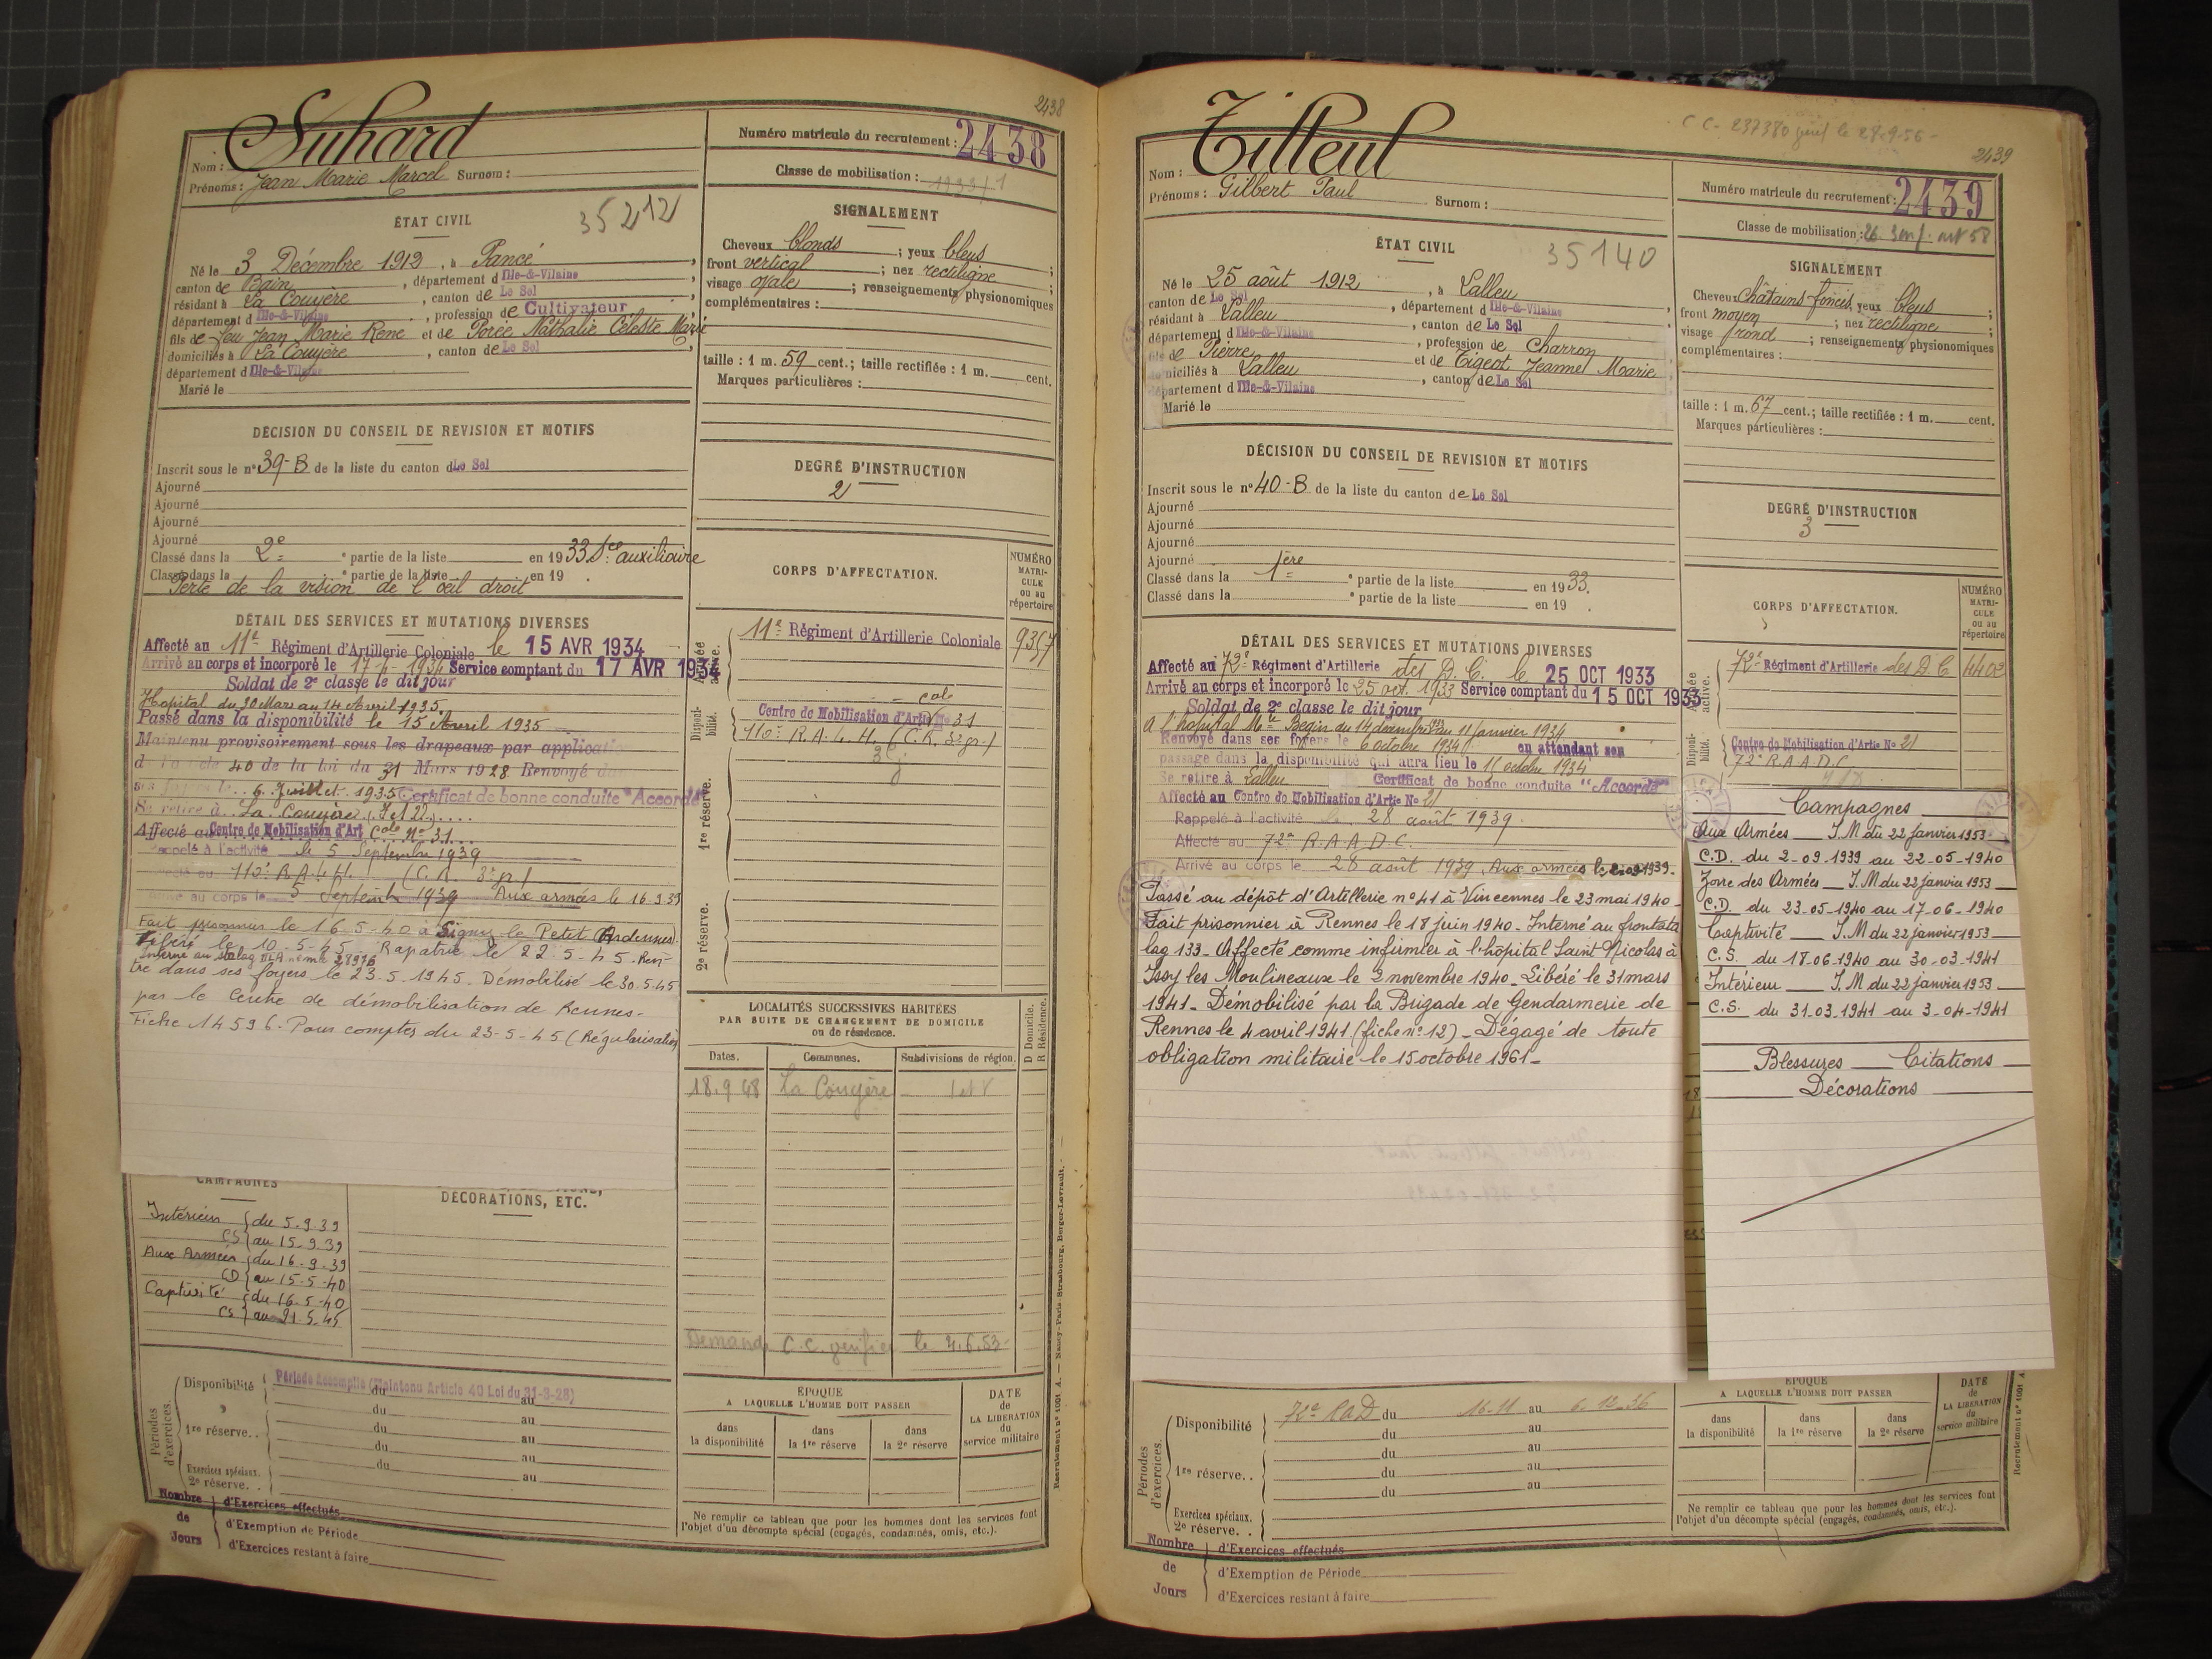 2438
Suhard
Nom :
Prénoms : Jean Marie Marcel Surnom :
Numéro matricule du recrutement : 2438
Classe de mobilisation :
ÉTAT CIVIL
35212
Né le 3 Décembre 1912, à Pancé,
canton de Bain, département d Ille-&-Vilaine
résidant à La Couyère, canton de Le Sel,
département d Ille-&-Vilaine, profession de Cultivateur,
fils de feu Jean Marie René et de Porée Nathalie Céleste Marie
domiciliés à La Couyère, canton de Le Sel,
département d Ille-&-Vilaine
Marié le
SIGNALEMENT
Cheveux blonds ; yeux bleus ;
front vertical ; nez rectiligne ;
visage ovale ; renseignements physionomiques
complémentaires :
taille : 1 m. 59 cent.; taille rectifiée : 1 m. cent.
Marques particulières :
DÉCISION DU CONSEIL DE REVISION ET MOTIFS
Inscrit sous le n° 39-B de la liste du canton d Le Sel
Ajourné
Ajourné
Ajourné
Ajourné
Classé dans la 2e e partie de la liste en 1933 Sce auxiliaire
Classé dans la e partie de la liste en 19 .
Perte de la vision de l'oeil droit
DEGRÉ D'INSTRUCTION
2
CORPS D'AFFECTATION.
NUMÉRO
MATRI-
CULE
ou au
répertoire
DÉTAIL DES SERVICES ET MUTATIONS DIVERSES
Affecté au 11e Régiment d'Artillerie Coloniale le 15 AVR 1934
Arrivé au corps et incorporé le 17-4-1934 Service comptant du 17 AVR 1934
Soldat de 2e classe le dit jour
Hopital du 30 Mars au 14 Avril 1935
Passé dans la disponibilité le 15 Avril 1935
Maintenu provisoirement sous les drapeaux par applicatio
40 de la loi du 31 Mars 1928 Renvoyé
6 Juillet 1935 Certificat de bonne conduite "Accordé"
Se retire à La Couyère (I et V)
Affecté au Centre de Mobilisation d'Art Cole N° 31
Rappelé à l'activité le 5 Septembre 1939
110e R.A.L.H. (C.R. 3e gr)
au corps le 5 Septembre 1939 Aux armées le 16-9-39
Fait prisonnier le 16-5-40 à Signy le Petit (Ardennes)
Libéré le 10-5-45 Rapatrié le 22-5-45. Ren-
Interné au stalag
tré dans ses foyers le 23-5-1945. Démobilisé le 30-5-45
par le Centre de démobilisation de Rennes-
Fiche 14596. Pour compter du 23-5-45 (Régularisation
Armée
active.
11e Régiment d'Artillerie Coloniale 9357
Disponi-
bilité.
Cole
Centre de Mobilisation d'Artie N° 31
110e R.A.L.H. (C.R. 3e gr.)
1re réserve.
2e réserve.
LOCALITÉS SUCCESSIVES HABITÉES
PAR SUITE DE CHANGEMENT DE DOMICILE
ou de résidence.
Dates. Communes. Subdivisions de région. D Domicile. R Résidence.
18.9.48 La Couyère I et V
Demande C.C. vérifiée le 4.6.53-
CAMPAGNES
DÉCORATIONS, ETC.
Intérieur du 5.9.39
CS au 15.9.39
Aux Armées du 16-9-39
CD au 15-5-40
Captivité du 16-5-40
CS au 21-5-45
Périodes
d'exercices.
Disponibilité Période Accomplie (Maintenu Article 40 Loi du 31-3-28)
du au
du au
1re réserve. . du au
du au
du au
Exercices spéciaux.
2e réserve. .
Nombre de Jours
d'Exercices effectués
d'Exemption de Période
d'Exercices restant à faire
ÉPOQUE
A LAQUELLE L'HOMME DOIT PASSER
dans la disponibilité
dans la 1re réserve
dans la 2e réserve
DATE de LA LIBÉRATION du service militaire
Ne remplir ce tableau que pour les hommes dont les services font
l'objet d'un décompte spécial (engagés, condamnés, omis, etc.).
Recrutement n° 1001 A. — Nancy-Paris-Strasbourg, Berger-Levrault.
C.C. 237380 le 28-9-56-
2439
Tilleul
Nom :
Prénoms : Gilbert Paul Surnom :
Numéro matricule du recrutement : 2439
Classe de mobilisation :
ÉTAT CIVIL
35140
Né le 25 août 1912, à Lalleu
canton de Le Sel, département d Ille-&-Vilaine
résidant à Lalleu, canton de Le Sel
département d Ille-&-Vilaine, profession de Charron
fils de Pierre et de Tigeot Jeanne Marie
domiciliés à Lalleu, canton de Le Sel
département d Ille-&-Vilaine
Marié le
SIGNALEMENT
Cheveux châtains foncés, yeux bleus ;
front moyen ; nez rectiligne ;
visage rond ; renseignements physionomiques
complémentaires :
taille : 1 m. 67 cent.; taille rectifiée : 1 m. cent.
Marques particulières :
DÉCISION DU CONSEIL DE REVISION ET MOTIFS
Inscrit sous le n° 40-B de la liste du canton de Le Sel
Ajourné
Ajourné
Ajourné
Ajourné
Classé dans la 1ère e partie de la liste en 1933.
Classé dans la e partie de la liste en 19 .
DEGRÉ D'INSTRUCTION
3
CORPS D'AFFECTATION.
NUMÉRO
MATRI-
CULE
ou au
répertoire
DÉTAIL DES SERVICES ET MUTATIONS DIVERSES
Affecté au 72e Régiment d'Artillerie des D.C. le 25 OCT 1933
Arrivé au corps et incorporé le 25 oct. 1933 Service comptant du 15 OCT 1933
Soldat de 2e classe le dit jour
A l'hopital Mre Begin du 14 décembre 1933 au 11 janvier 1934
Renvoyé dans ses foyers le 6 octobre 1934 en attendant son
passage dans la disponibilité qui aura lieu le 15 octobre 1934
Se retire à Lalleu Certificat de bonne conduite "Accordé"
Affecté au Centre de Mobilisation d'Artie N° 21
Rappelé à l'activité le 28 août 1939.
Affecté au 72e R.A.A.D.C.
Arrivé au corps le 28 août 1939 Aux armées le 2.09.1939.
Passé au dépôt d'Artillerie n° 41 à Vincennes le 23 mai 1940-
Fait prisonnier à Rennes le 18 juin 1940- Interné au frontsta
lag 133- Affecté comme infirmier à l'hôpital Saint Nicolas à
Issy les Moulineaux le 2 novembre 1940- Libéré le 31 mars
1941- Démobilisé par la Brigade de Gendarmerie de
Rennes le 4 avril 1941 (fiche n° 12)- Dégagé de toute
obligation militaire le 15 octobre 1961-
Armée
active.
72e Régiment d'Artillerie des D.C. 4402
Disponi-
bilité.
Centre de Mobilisation d'Artie N° 21
72e R.A.A.D.C.
Campagnes
Aux Armées — I.M du 22 janvier 1953-
C.D. du 2-09-1939 au 22-05-1940
Zone des Armées — I.M du 22 janvier 1953
C.D. du 23-05-1940 au 17-06-1940
Captivité — I.M du 22 janvier 1953
C.S. du 18-06-1940 au 30-03-1941
Intérieur — I.M du 22 janvier 1953
C.S. du 31-03-1941 au 3-04-1941
Blessures — Citations
Décorations
Périodes
d'exercices.
Disponibilité 72e RAD du 16-11 au 6-12-36
du au
du au
1re réserve. . du au
du au
Exercices spéciaux.
2e réserve. .
Nombre de Jours
d'Exercices effectués
d'Exemption de Période
d'Exercices restant à faire
ÉPOQUE
A LAQUELLE L'HOMME DOIT PASSER
dans la disponibilité
dans la 1re réserve
dans la 2e réserve
DATE de LA LIBÉRATION du service militaire
Ne remplir ce tableau que pour les hommes dont les services font
l'objet d'un décompte spécial (engagés, condamnés, omis, etc.).
Recrutement n° 1001 A